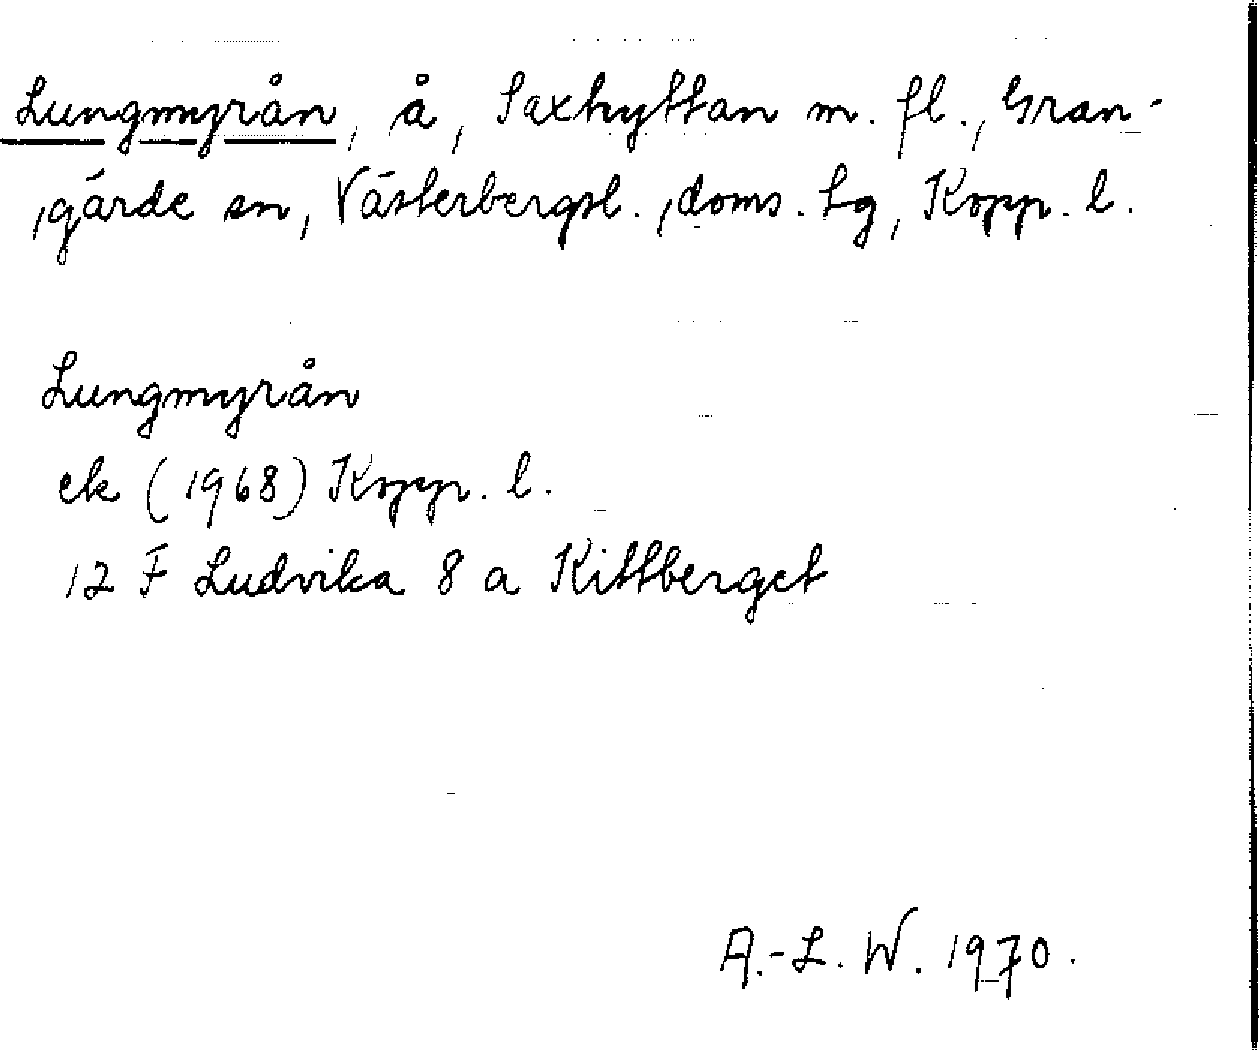 Lungmyrån, å, Saxhyttan m. fl., Gran-
gärde sn, Västerbergsl., doms. tg, Kopp. l.
Lungmyrån
ek (1968) Kopp. l.
12 F Ludvika 8 a Kittberget
A.-L. W. 1970.